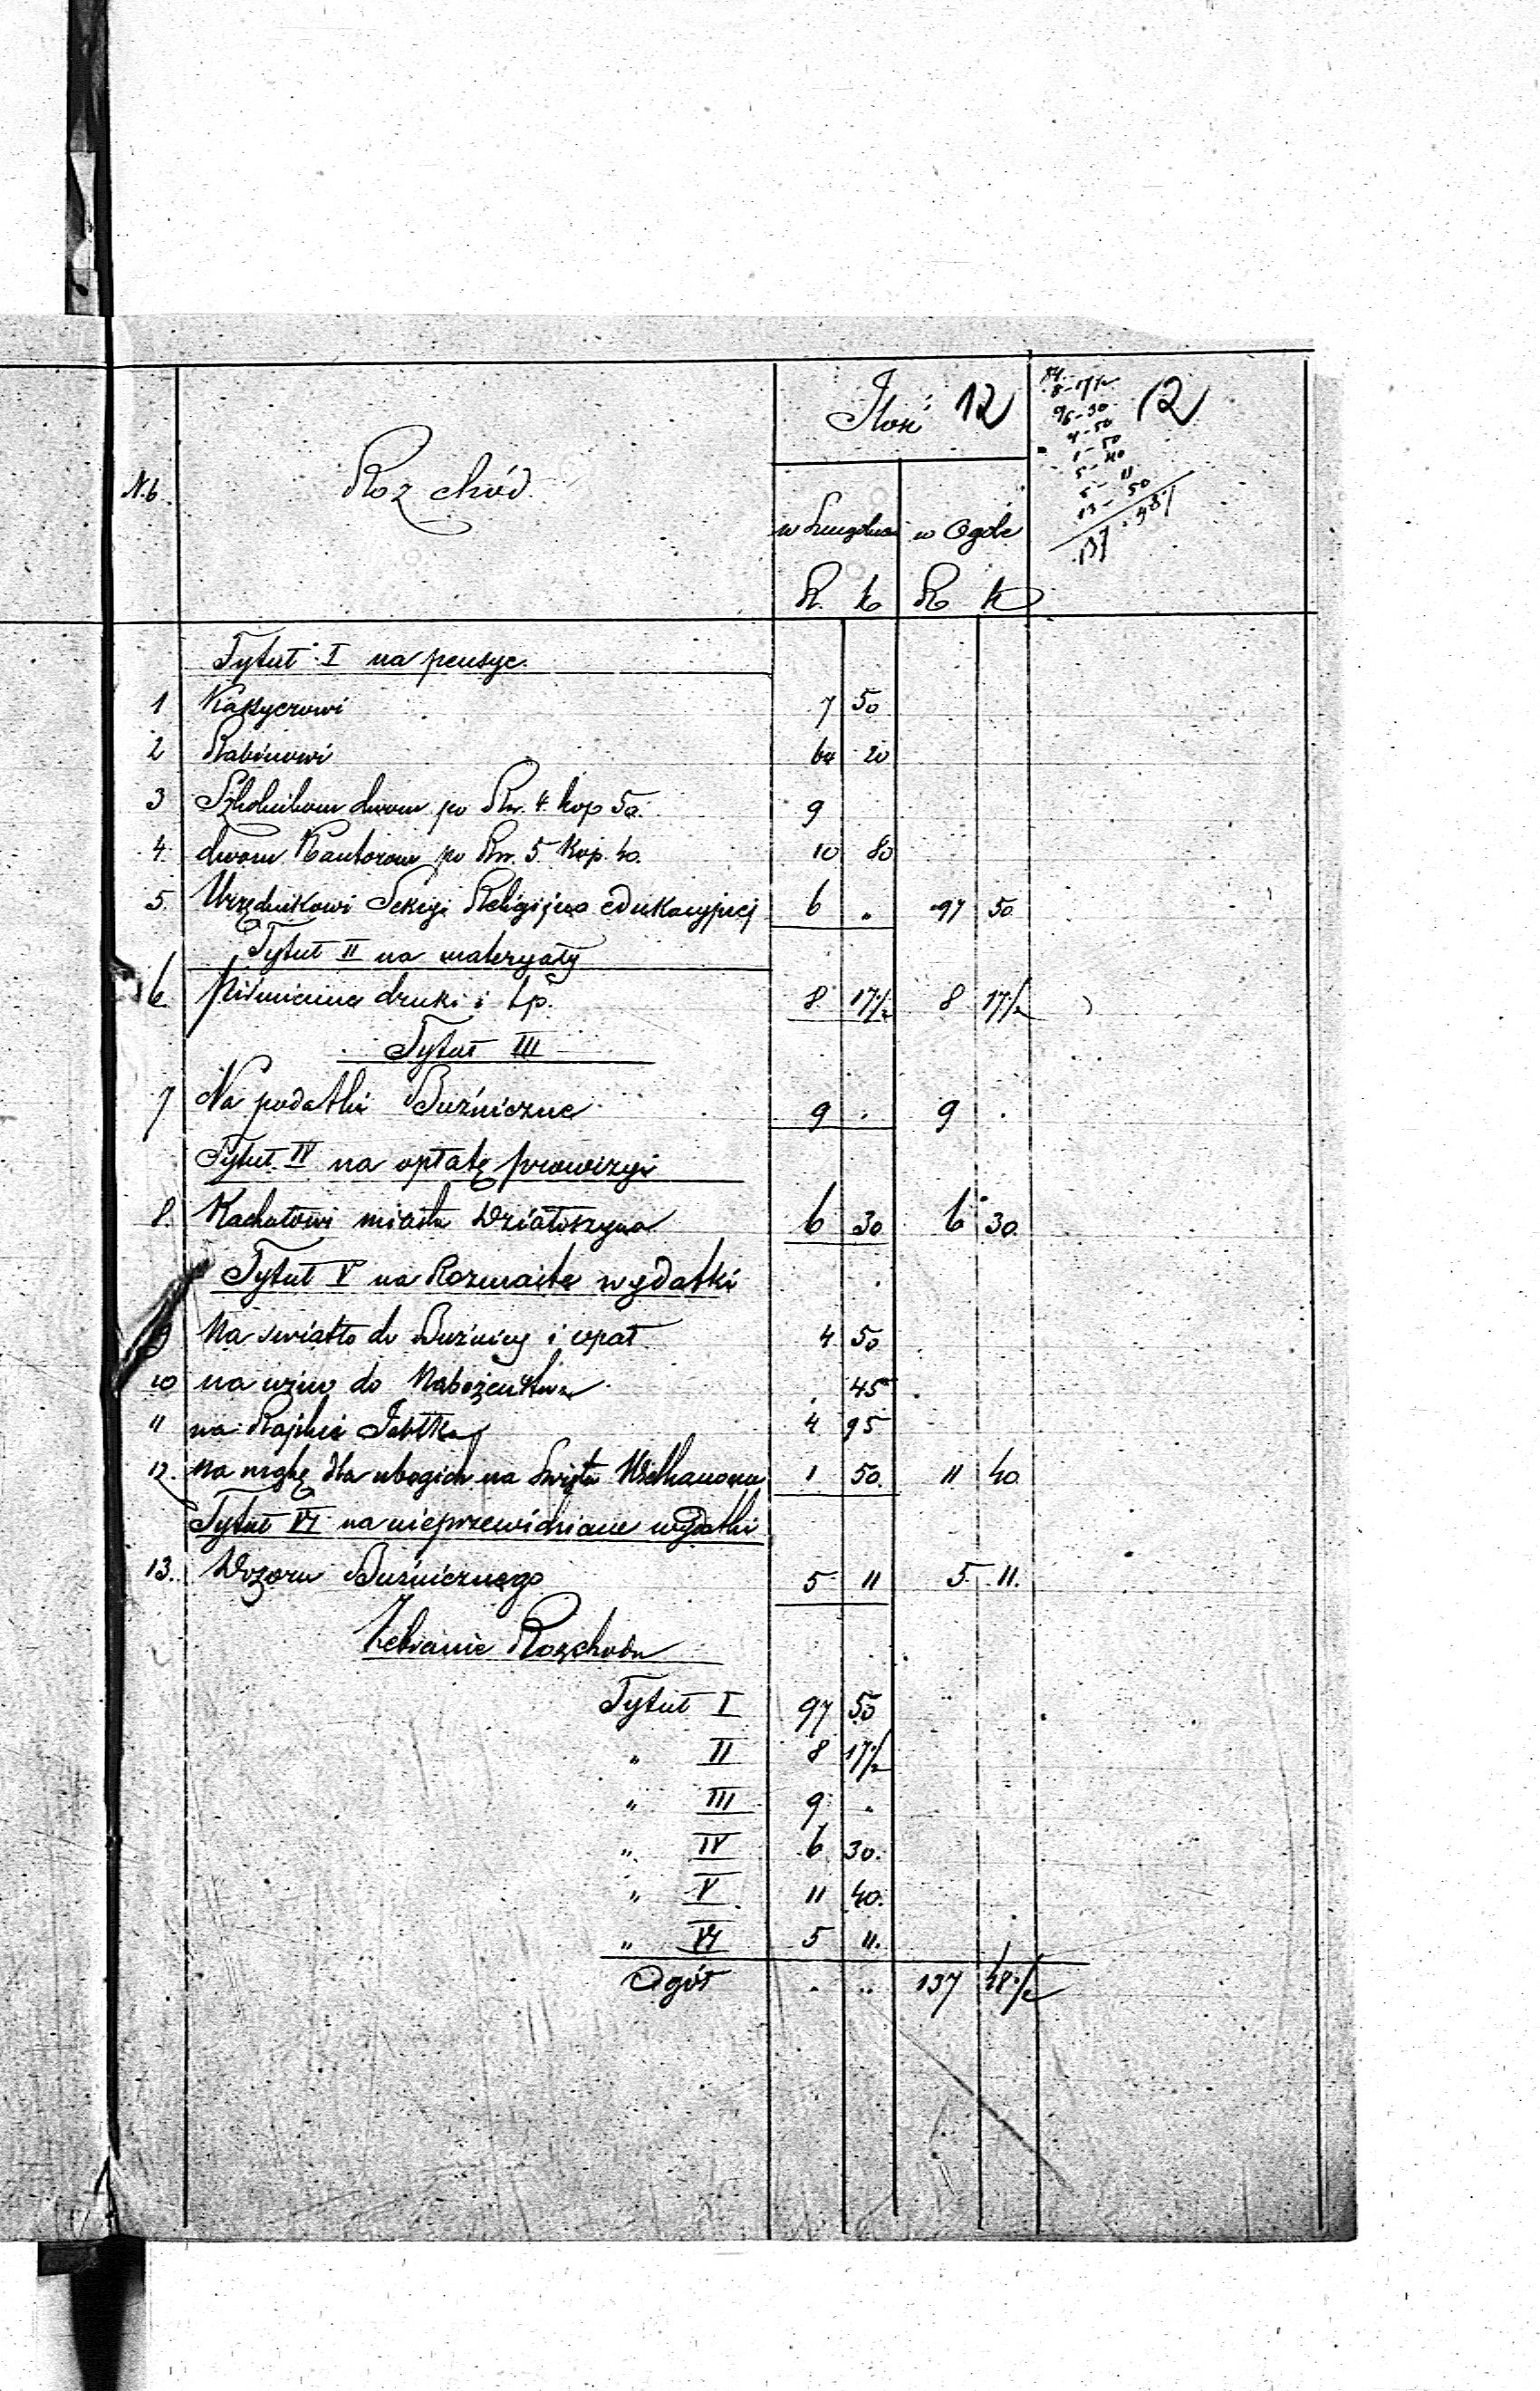 Ilość 12
12
84
8-17½
96-30
4-50
1-50
5-40
5-11
13-50
137.48½
N.b. Rozchód
w Szczególnoś w Ogóle
R. K R K
Tytuł I na pensye.
1 Kassyerowi 7 50
2 Rabinowi 64 20
3 Szkolnikom dwom po Rsr. 4 kop 50. 9
4. dwom Kantorom po Rsr. 5 Kop. 40. 10 80
5. Urzędnikowi Sekcyi Religijno edukacyjnej 6 „ 97 50
Tytuł II na materyały
6. piśmienne druki i t.p. 8 17½ 8 17½
Tytuł III
7 Na podatki Buźniczne 9 . 9 .
Tytuł IV na opłatę prowizyi
8. Kachałowi miasta Działoszyna 6 30 6 30.
Tytuł V na Rozmaite wydatki
9 Na swiatło do Buźnicy i opał 4 50
10 na wino do Nabożeństwa . 45
11 na Rajskie Jabłka 4 95
12. na mąkę dla ubogich na Swięta Wielkanocne 1 50. 11 40.
Tytuł VI na nieprzewidziane wydatki
13. Dozoru Buźnicznego 5 11 5. 11.
Zebranie Rozchodu
Tytuł I 97 50
„ II 8 17½
„ III 9 „
„ IV 6 30.
„ V 11 40.
„ VI 5 11.
Ogół . „ 137 48½